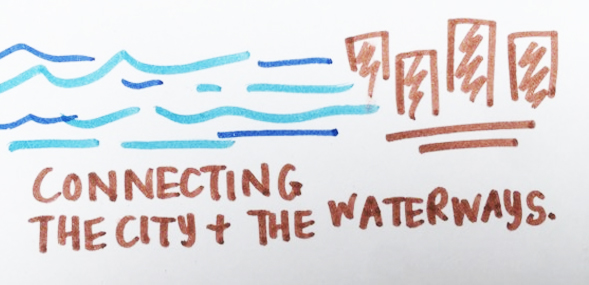 CONNECTING
THE CITY + THE WATERWAYS.